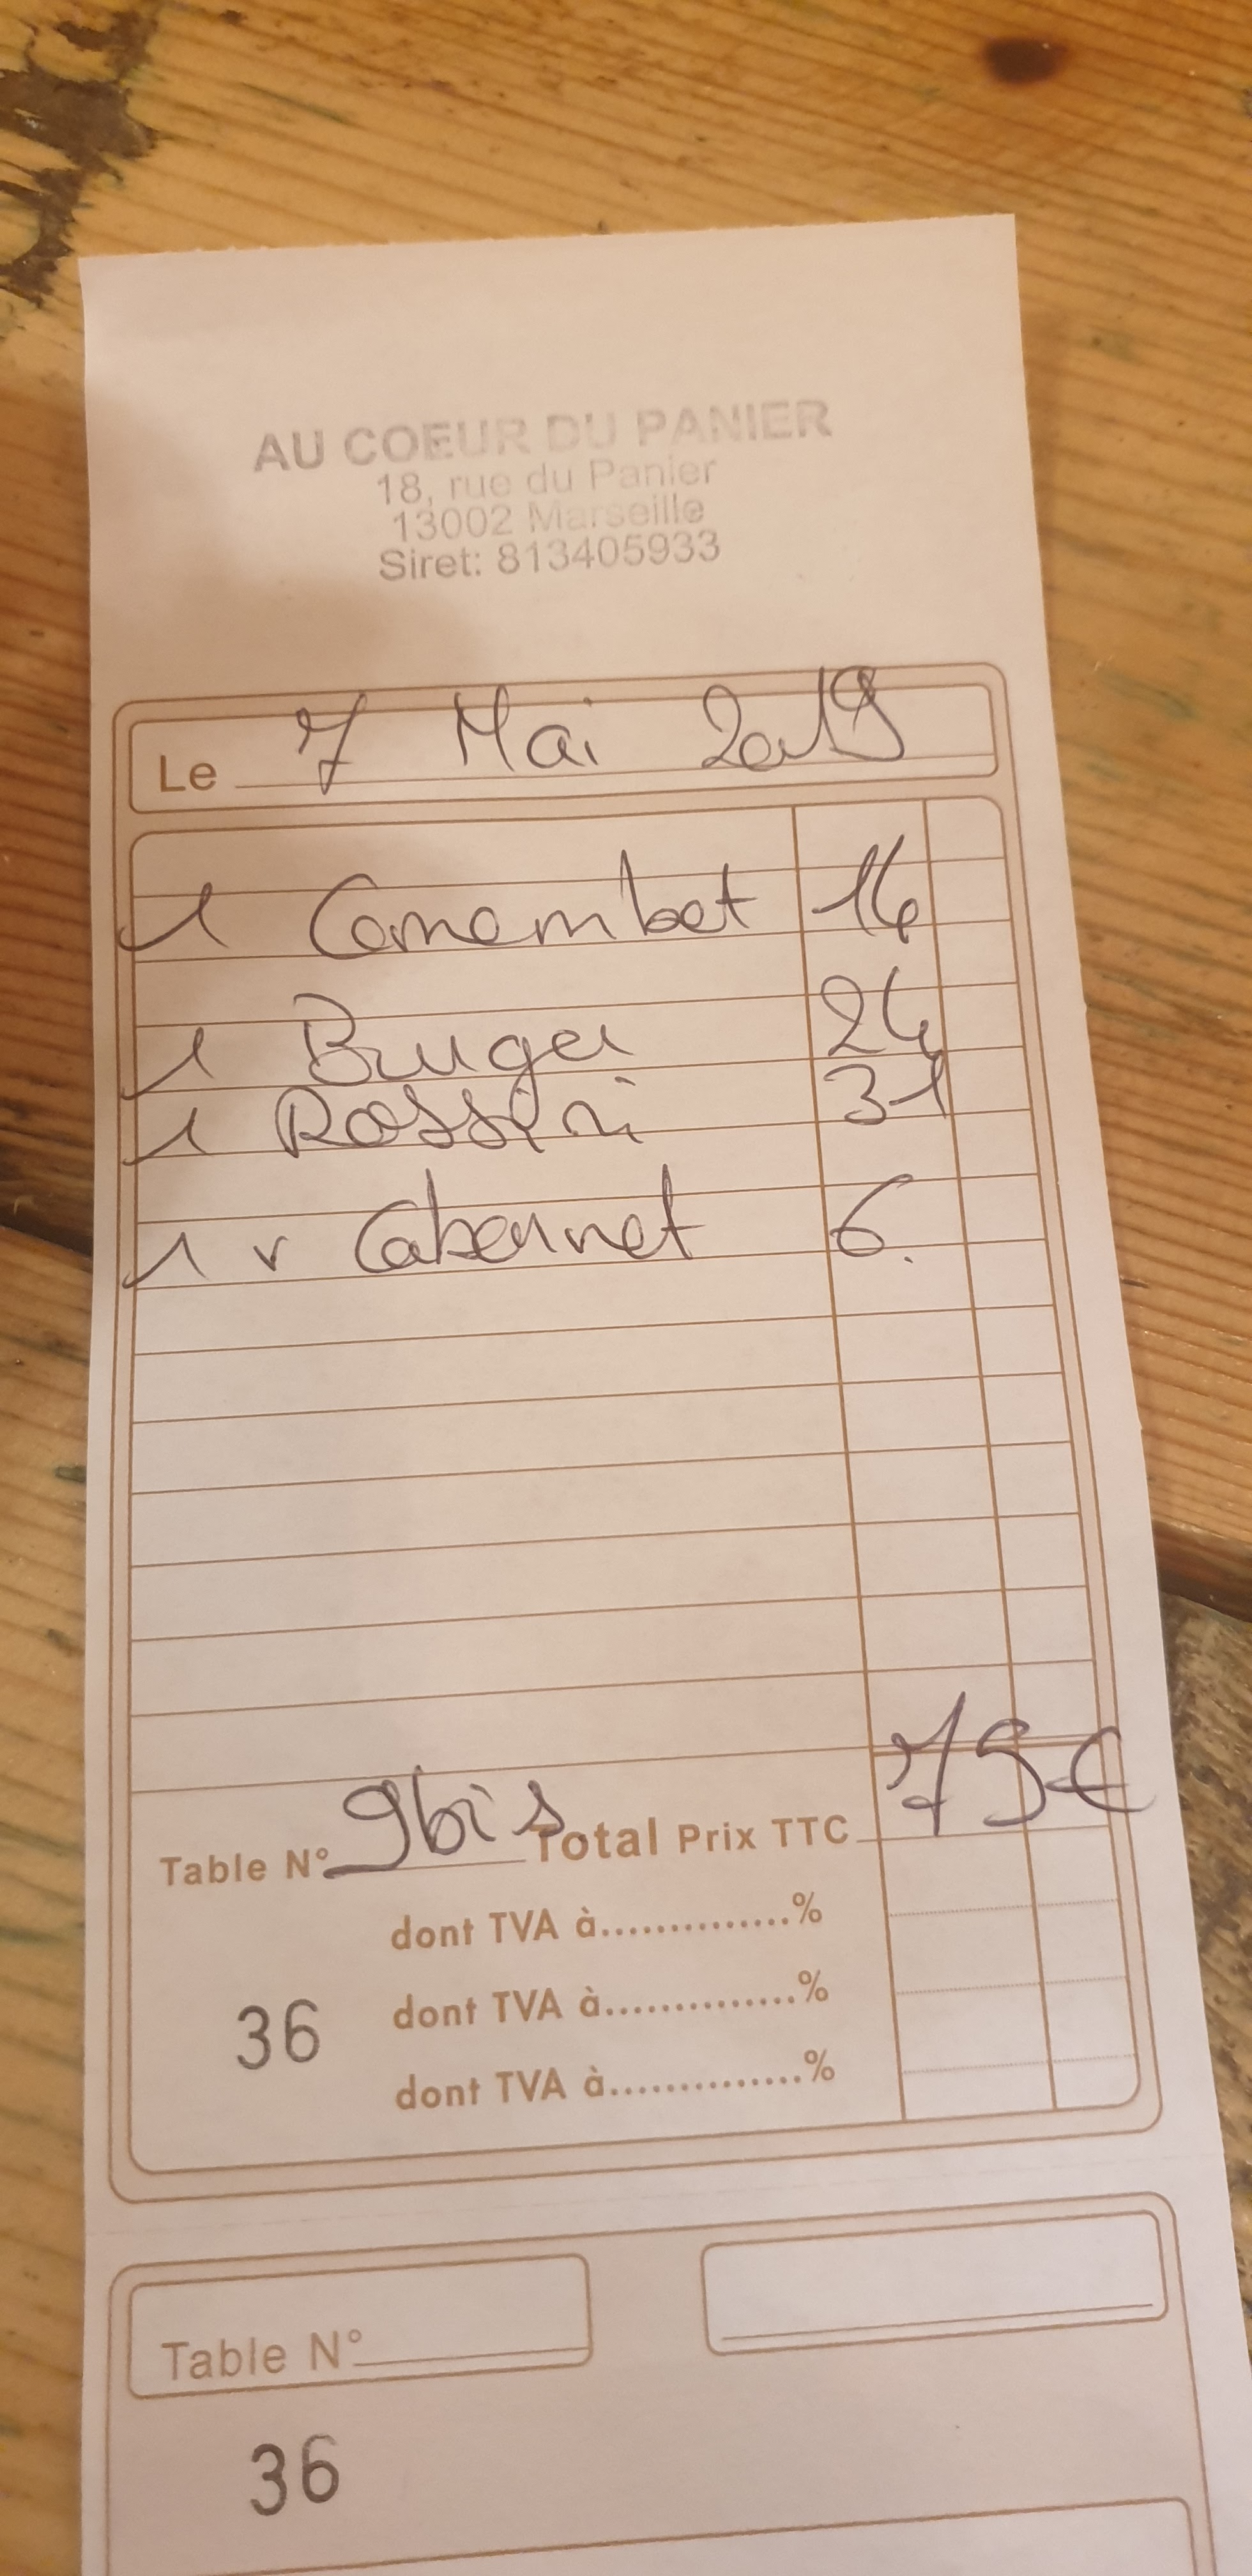 AU COEUR DU PANIER
18, rue du Panier
13002 Marseille
Siret: 813405933
Le 7 Mai 2019
1 Camembet 14
1 Burger 24
1 Rossini 31
1 v Cabernet 6.
Table N° 9bis Total Prix TTC 75€
dont TVA à..............%
36 dont TVA à..............%
dont TVA à..............%
Table N°
36